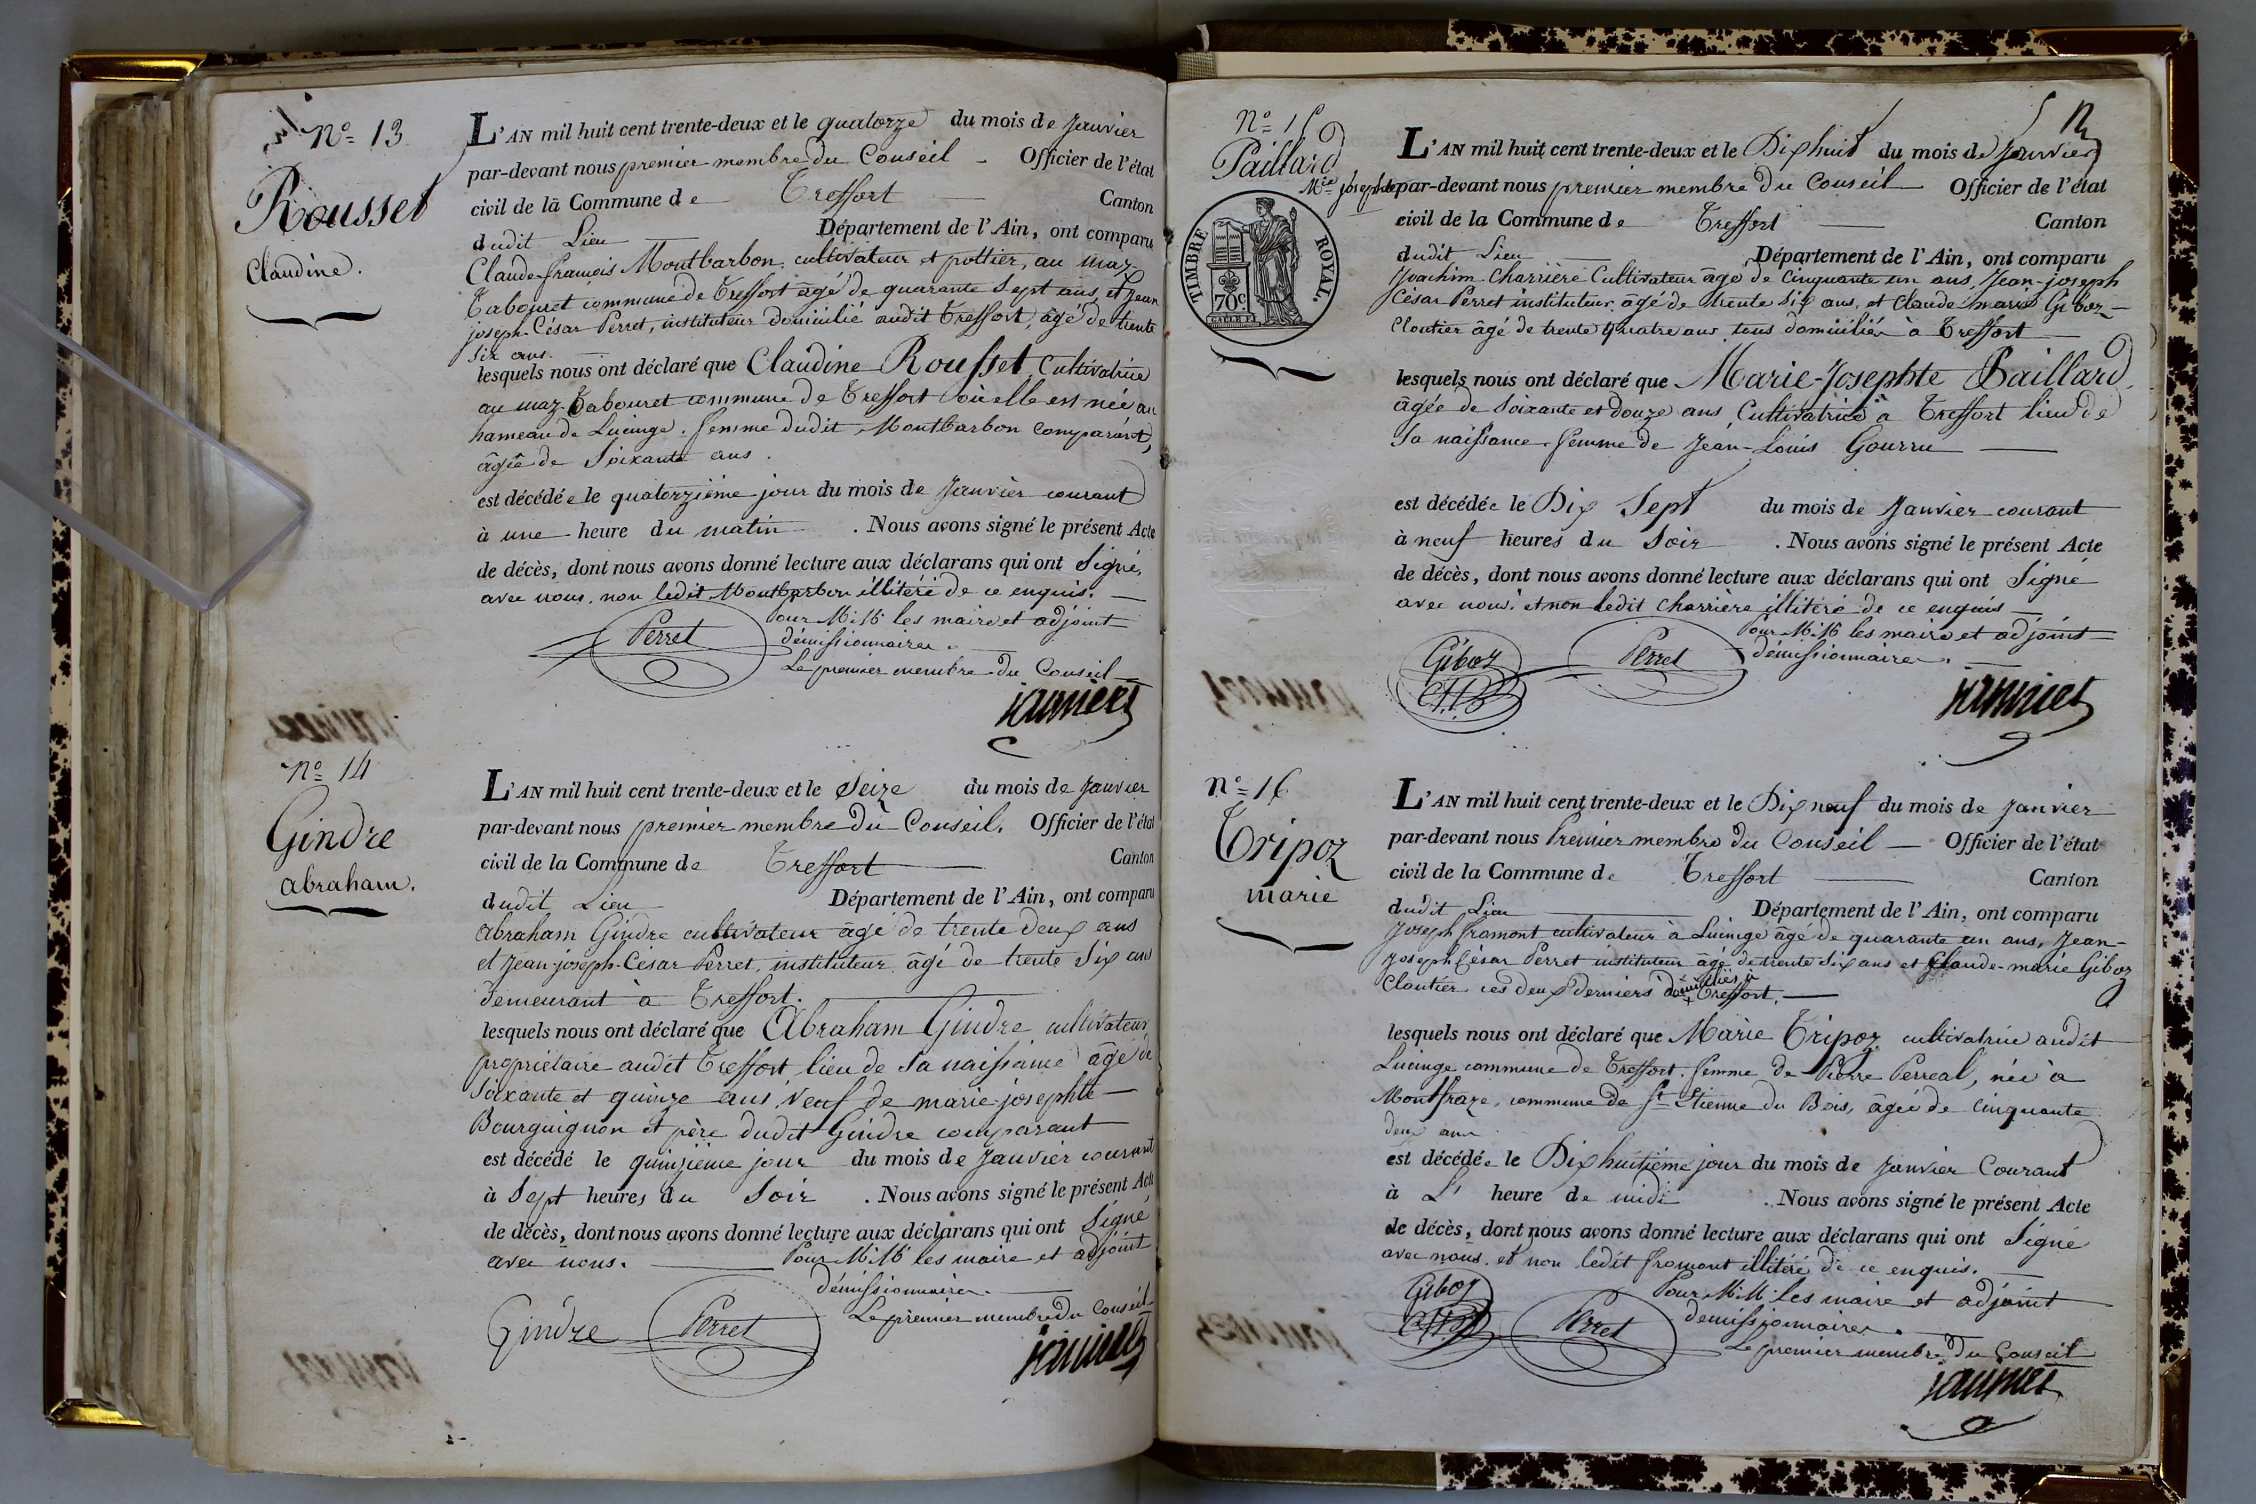 No 13.
Rousset
Claudine.
L'AN mil huit cent trente-deux et le quatorze du mois de Janvier
par-devant nous premier membre du Conseil - Officier de l'état
civil de la Commune de Treffort Canton
dudit Lieu Département de l'Ain, ont comparu
Claude-françois Montbarbon, cultivateur et pottier, au maz
Tabouret commune de Treffort âgé de quarante Sept ans, et Jean
joseph-César Perret, instituteur domicilié audit Treffort, âgé de trente
Six ans.
lesquels nous ont déclaré que Claudine Rousset, Cultivatrice
au maz-Tabouret commune de Treffort où elle est née au
hameau de Lucinge. femme dudit Montbarbon comparant,
âgée de Soixante ans.
est décédée le quatorzième jour du mois de Janvier courant
à une heure du matin . Nous avons signé le présent Acte
de décès, dont nous avons donné lecture aux déclarans qui ont Signé,
avec nous, non ledit Montbarbon illitéré de ce enquis.
Pour M.M. les maire et adjoint
démissionnaires.
Le premier membre du Conseil
Perret
No 14
Gindre
abraham.
L'AN mil huit cent trente-deux et le Seize du mois de Janvier
par-devant nous premier membre du Conseil. Officier de l'état
civil de la Commune de Treffort Canton
dudit Lieu Département de l'Ain, ont comparu
abraham Gindre cultivateur âgé de trente deux ans
et Jean-joseph-Cesar Perret, instituteur âgé de trente Six ans
demeurant à Treffort.
lesquels nous ont déclaré que Abraham Gindre cultivateur
propriétaire audit Treffort lieu de Sa naissance âgé de
Soixante et quinze ans, Veuf de marie-josephte
Bourguignon et père dudit Gindre comparant
est décédé le quinzieme jour du mois de Janvier courant
à Sept heures du Soir . Nous avons signé le présent Acte
de décès, dont nous avons donné lecture aux déclarans qui ont Signé
avec nous. Pour M.M. les maire et adjoint
démissionnaires.
Le premier membre du Conseil
Gindre Perret
No 15
Paillard
Mie josephte
TIMBRE ROYAL.
70c
5
L'AN mil huit cent trente-deux et le Dix huit du mois de Janvier
par-devant nous premier membre du Conseil Officier de l'état
civil de la Commune de Treffort Canton
dudit Lieu Département de l'Ain, ont comparu
Joachim Charriere Cultivateur âgé de Cinquante un ans, Jean-joseph
César Perret instituteur âgé de trente Six ans, et Claude marie Giboz
Cloutier âgé de trente quatre ans tous domiciliés à Treffort
lesquels nous ont déclaré que Marie-Josephte Paillard,
âgée de Soixante et douze ans, Cultivatrice à Treffort lieu de
Sa naissance, femme de Jean-Louis Gourru
est décédée le Dix Sept du mois de Janvier courant
à neuf heures du Soir . Nous avons signé le présent Acte
de décès, dont nous avons donné lecture aux déclarans qui ont Signé
avec nous, et non ledit Charrière illitéré de ce enquis
Pour M.M. les maire et adjoint
démissionnaires.
Giboz Perret
No 16
Tripoz
marie
L'AN mil huit cent trente-deux et le Dix neuf du mois de Janvier
par-devant nous Premier membre du Conseil Officier de l'état
civil de la Commune de Treffort Canton
dudit Lieu Département de l'Ain, ont comparu
Joseph fromont cultivateur à Lucinge âgé de quarante un ans, Jean-
Joseph César Perret instituteur âgé de trente Six ans et Claude-marie Giboz
Cloutier ces deux derniers domiciliés à Treffort.
lesquels nous ont déclaré que Marie Tripoz cultivatrice audit
Lucinge commune de Treffort. femme de Pierre Perreal, née à
Montfraze, commune de St Etienne du Bois, âgée de Cinquante
deux ans
est décédée le Dix huitième jour du mois de Janvier Courant
à L' heure de midi . Nous avons signé le présent Acte
de décès, dont nous avons donné lecture aux déclarans qui ont Signé
avec nous, et non ledit fromont illitéré de ce enquis.
Pour M.M. les maire et adjoint
démissionnaires.
Le premier membre du Conseil
Giboz Perret